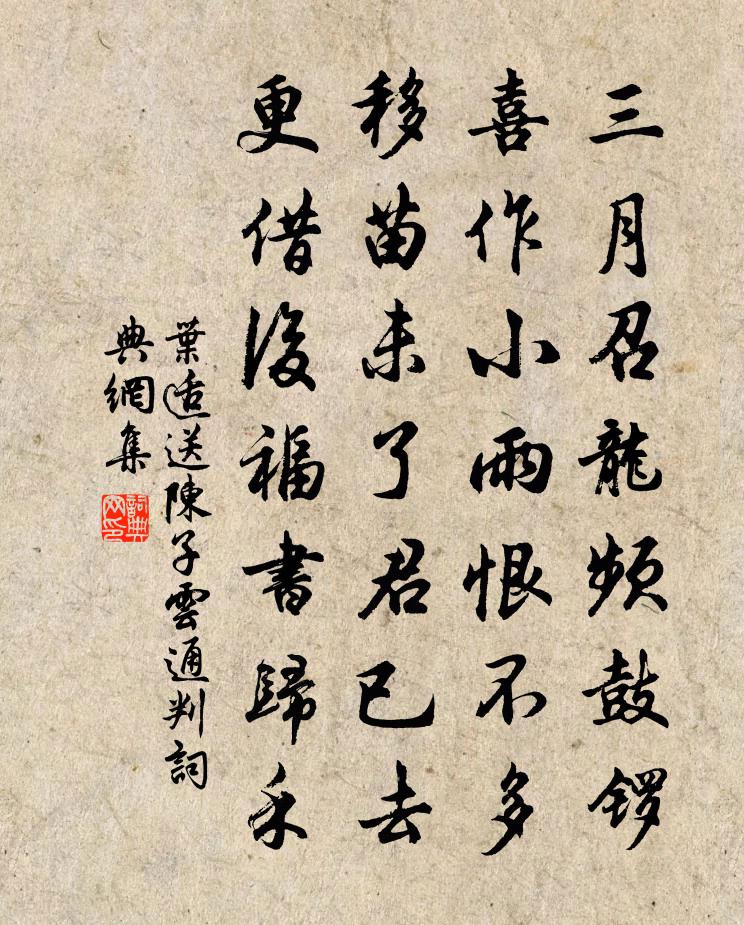 三月召龍頻鼓鑼
喜作小雨恨不多
移苗未了君已去
更借後福書歸禾
葉适送陳子雲通判詞
典網集
詞典網印